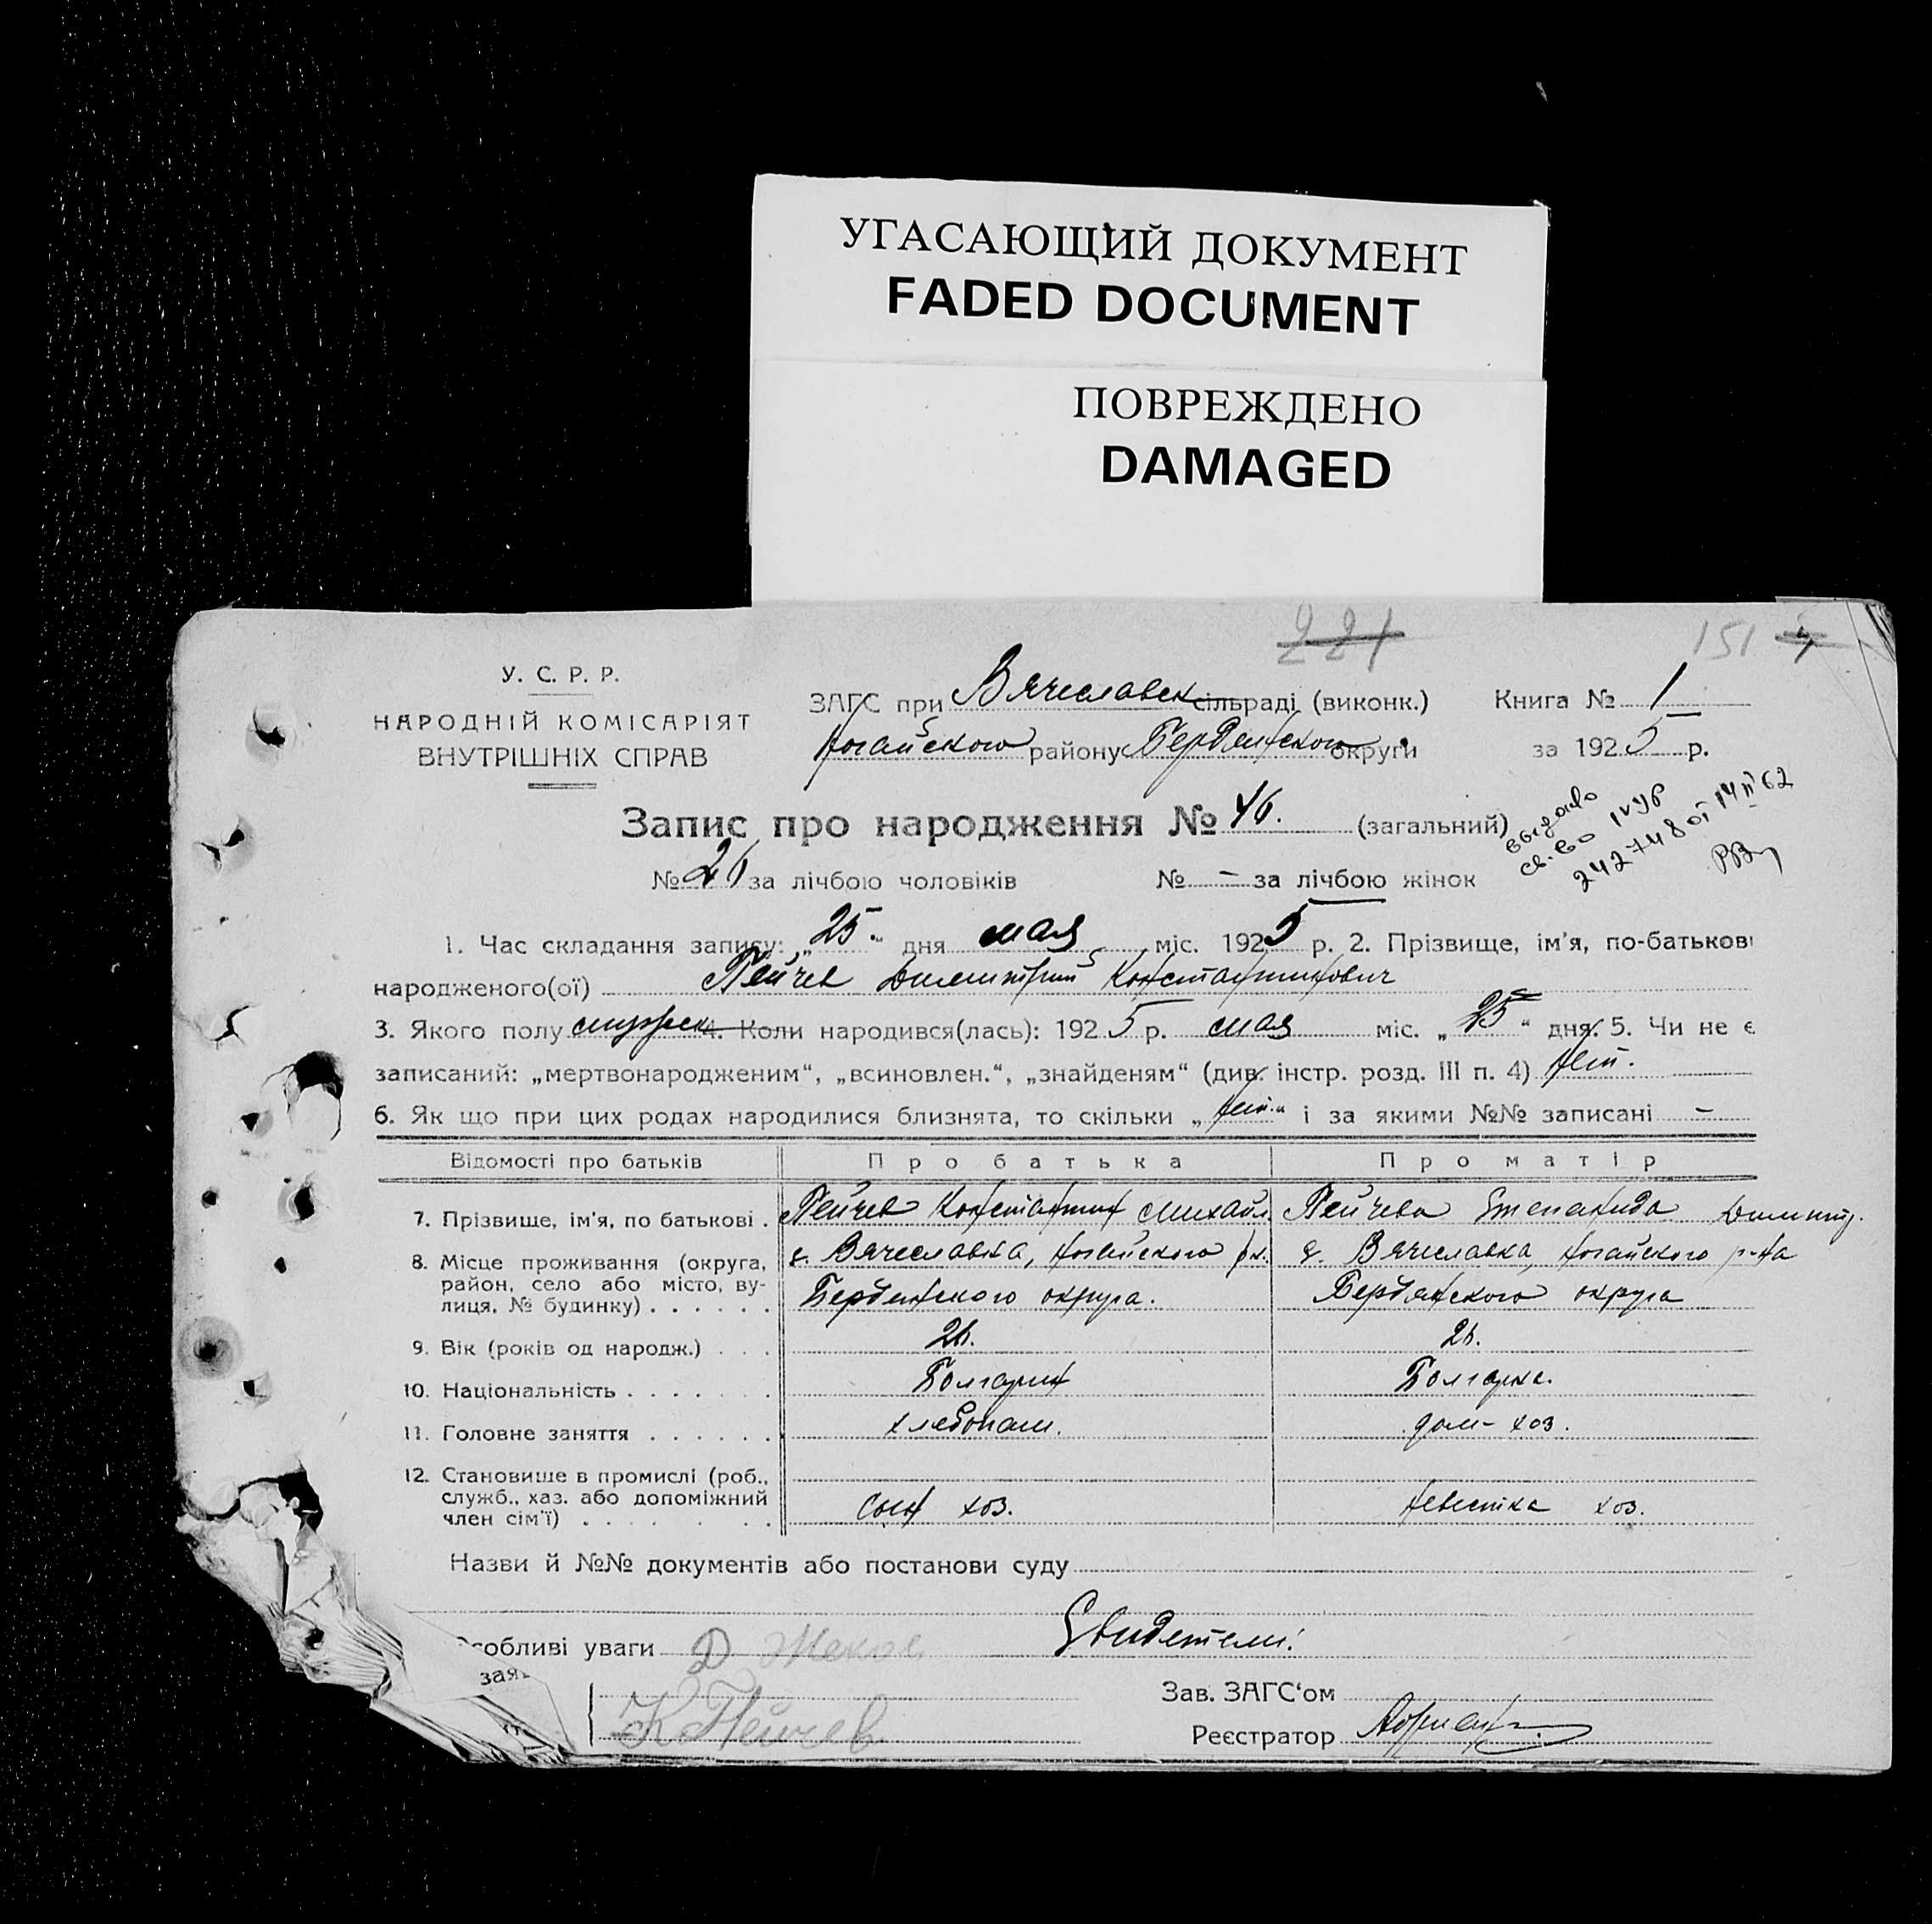 УГАСАЮЩИЙ ДОКУМЕНТ
FADED DOCUMENT
ПОВРЕЖДЕНО
DAMAGED
221
151
У. С. Р. Р.
НАРОДНІЙ КОМІСАРІЯТ
ВНУТРІШНІХ СПРАВ
ЗАГС при Вячеславск сільраді (виконк.) Книга № 1
Ногайского району Бердянского округи за 1925 р.
Запис про народження № 46. (загальний)
выдано
св-во
242748 от 14 II 62
№ 26 за лічбою чоловіків № – за лічбою жінок
1. Час складання запису: „25“ дня мая міс. 1925 р. 2. Прізвище, ім'я, по-батькові
народженого(ої) Пейчев Димитрий Константинович
3. Якого полу мужск 4. Коли народився(лась): 1925 р. мая міс. „25“ дня. 5. Чи не є
записаний: „мертвонародженим“, „всиновлен.“, „знайденям“ (див. інстр. розд. III п. 4) нет.
6. Як що при цих родах народилися близнята, то скільки „нет“ і за якими №№ записані –
Відомості про батьків Про батька Про матір
7. Прізвище, ім'я, по батькові . Пейчев Константин Михайл. Пейчева Степанида Димитр.
8. Місце проживання (округа, район, село або місто, вулиця, № будинку) . . . . . . с. Вячеславка, Ногайского рн. Бердянского округа. с. Вячеславка, Ногайского р-на Бердянского округа
9. Вік (років од народж.) . . . 26. 26.
10. Національність . . . . . Болгарин Болгарка.
11. Головне заняття . . . . . . хлебопаш. дом-хоз.
12. Становише в промислі (роб., служб., хаз. або допоміжний член сім'ї) . . . . . . сын хоз. невестка хоз.
Назви й №№ документів або постанови суду
Свидетели:
собливі уваги Д Жеков
зая
К Пейчев
Зав. ЗАГС'ом
Реєстратор